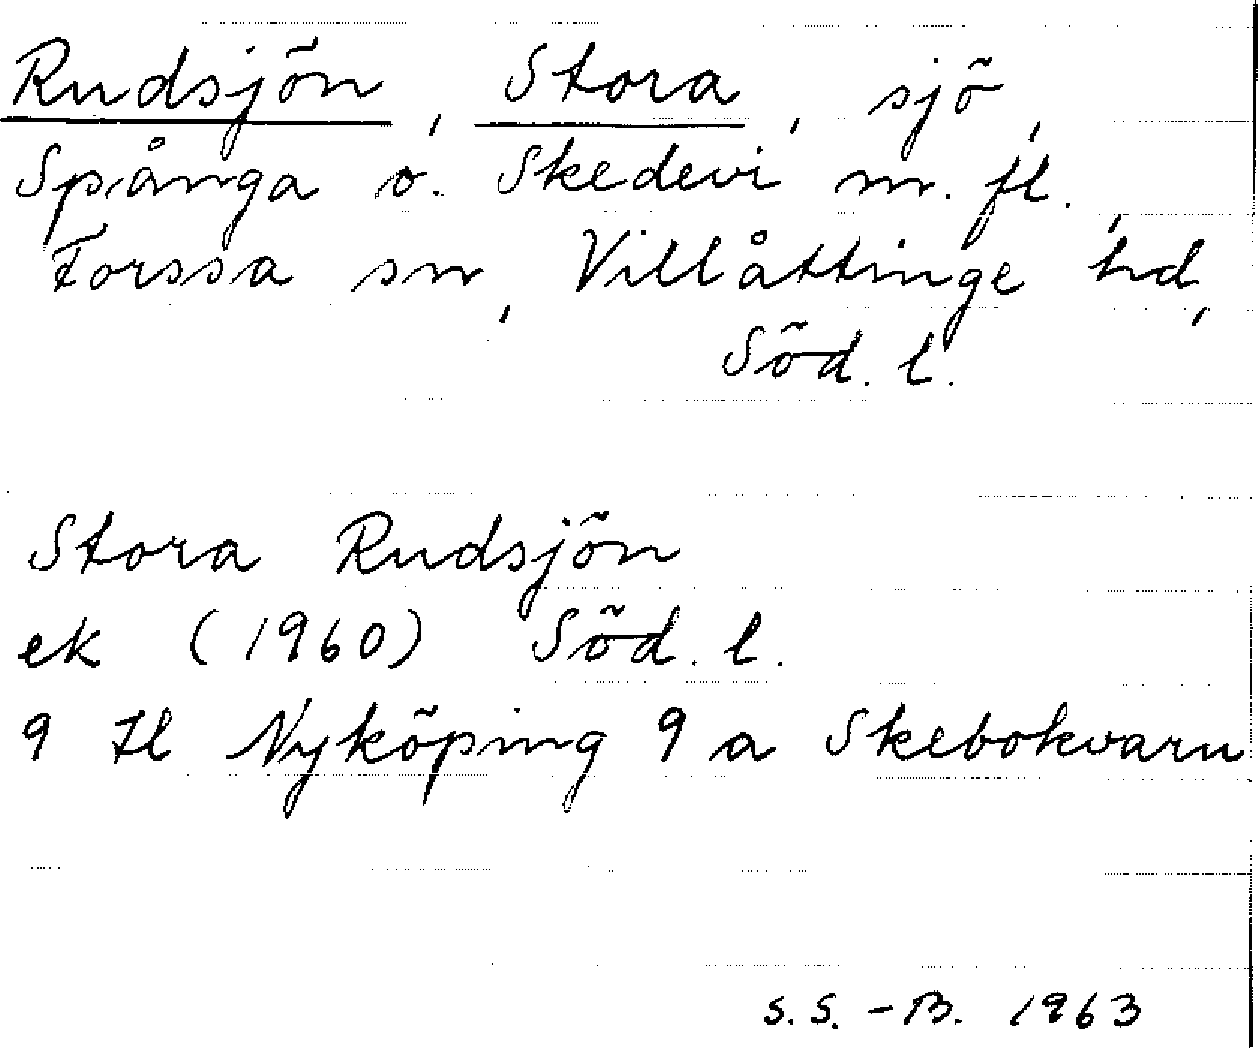 Rudsjön, Stora, sjö,
Spånga o. Skedevi m. fl.,
Forssa sn, Villåttinge hd,
Söd. l.
Stora Rudsjön
ek (1960) Söd. l.
9 H Nyköping 9 a Skebokvarn
S.S.-B. 1963